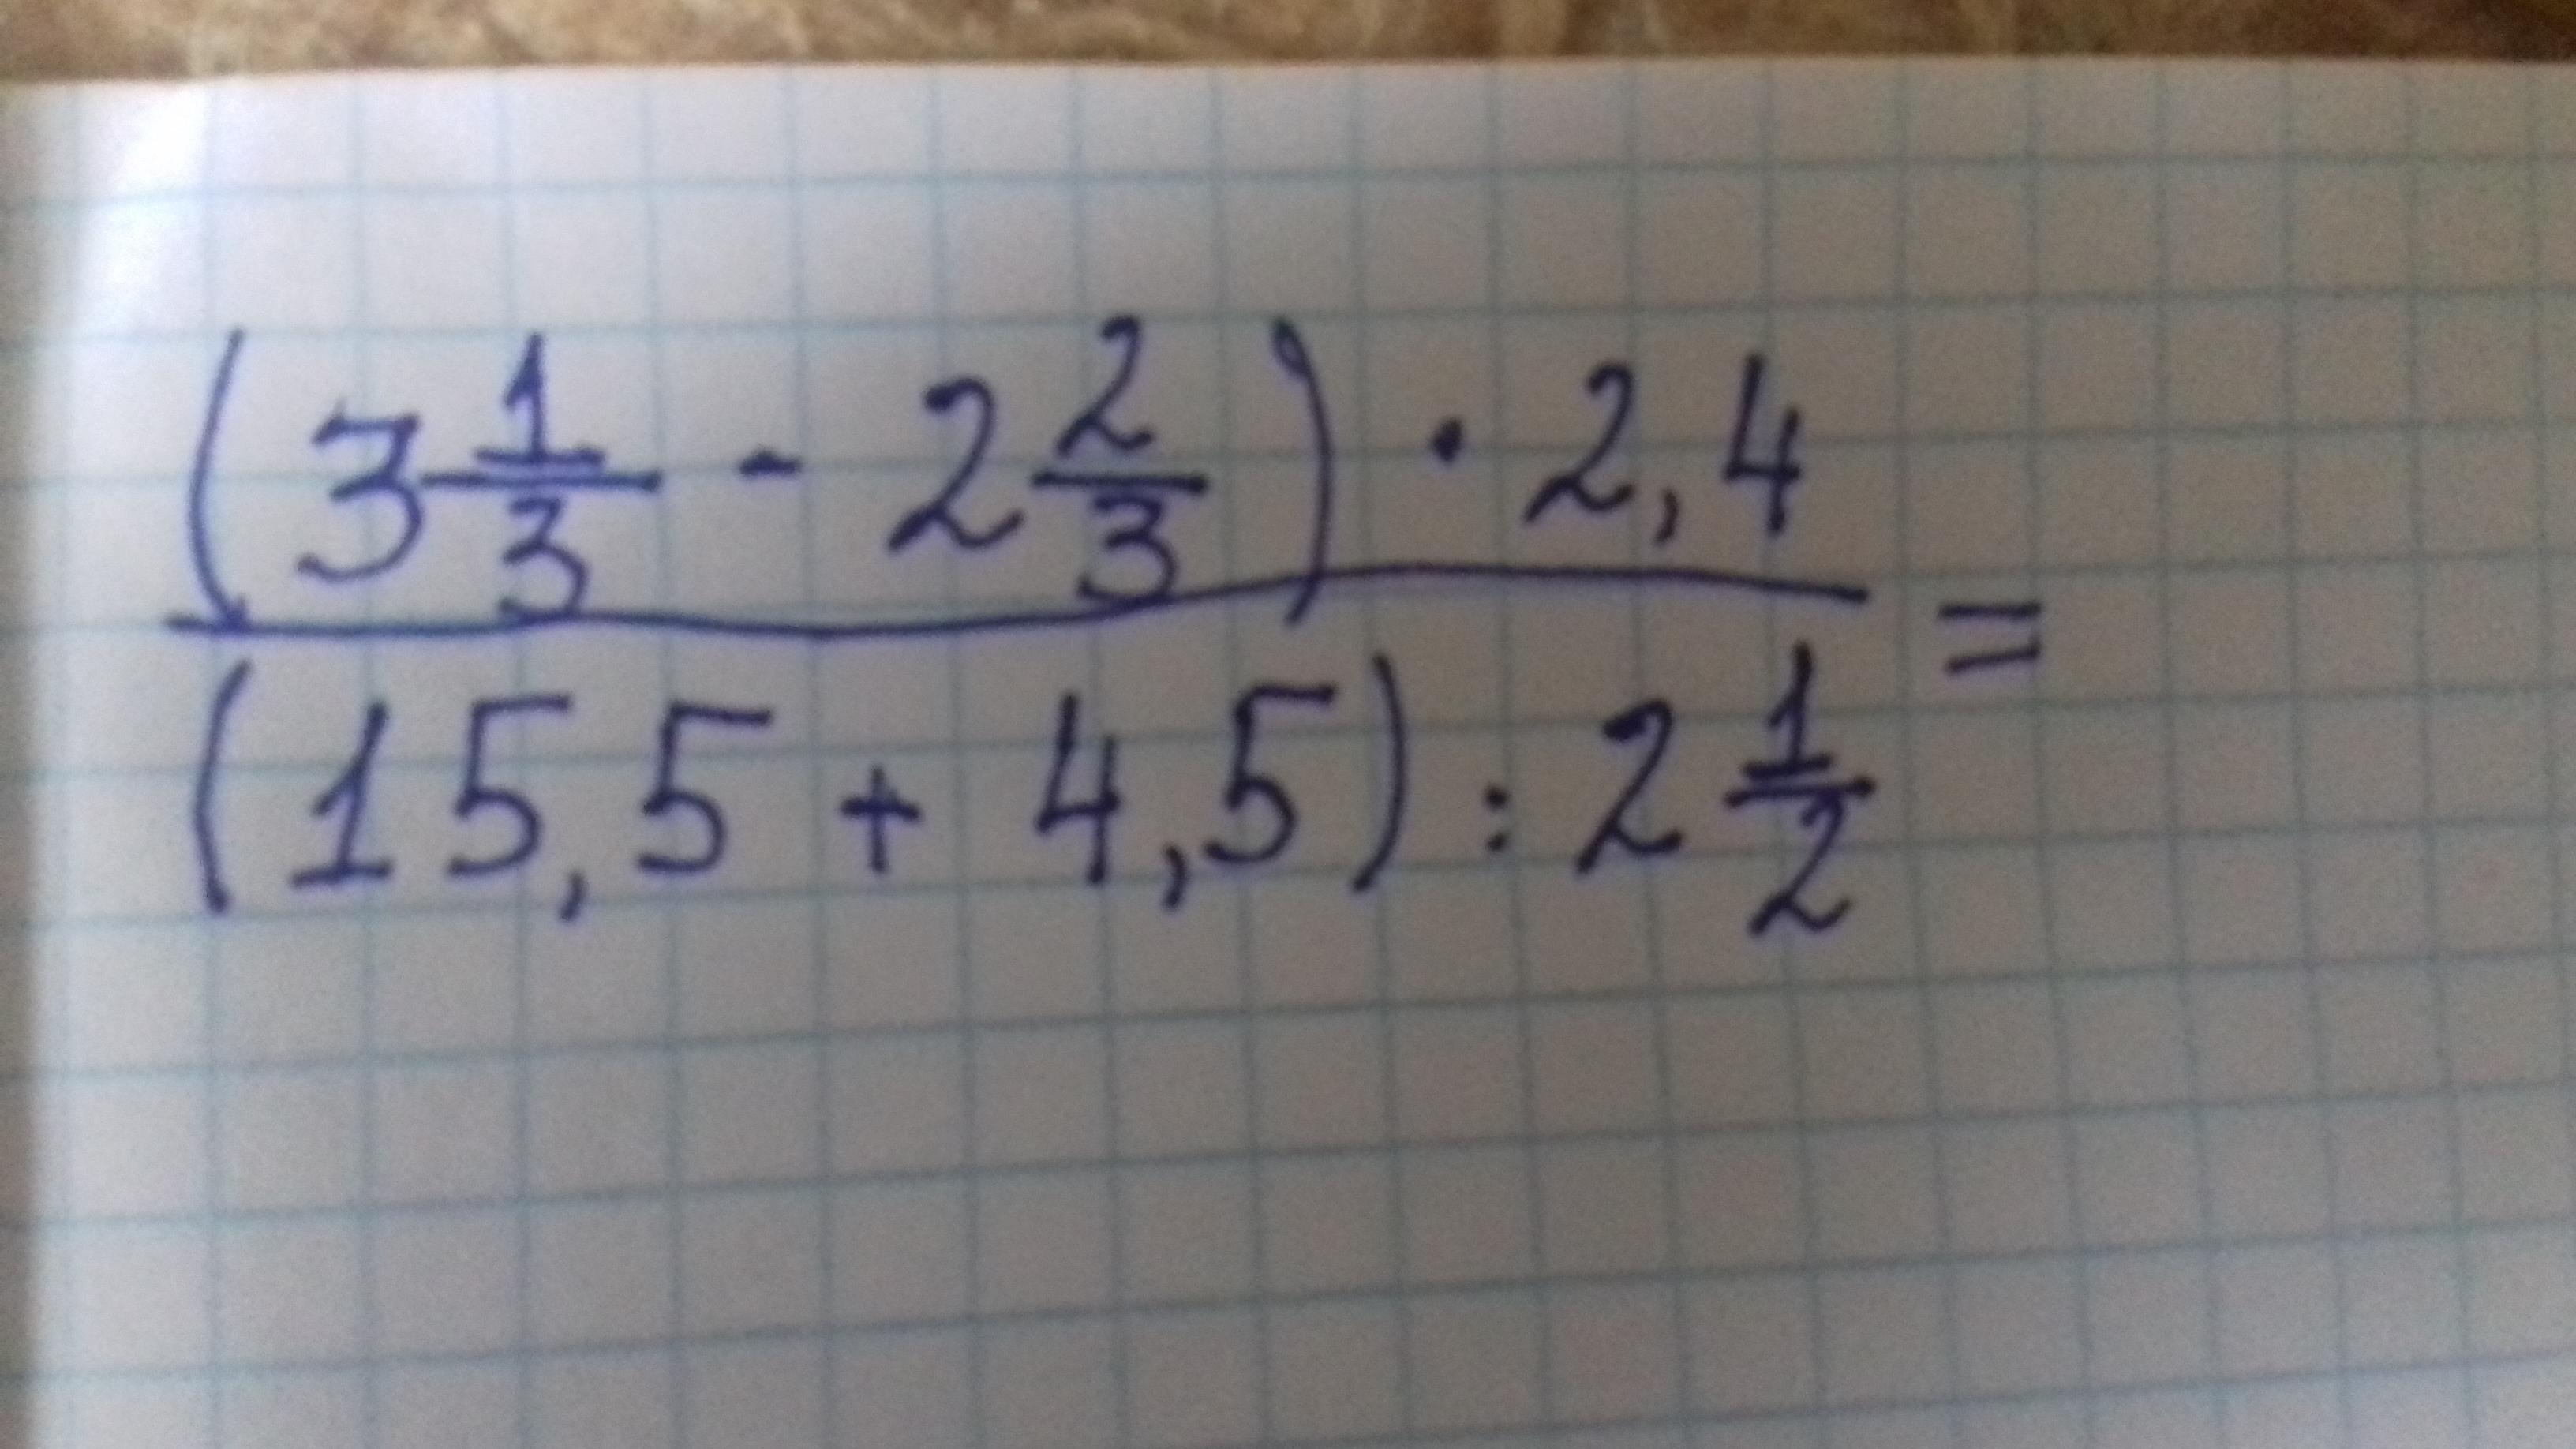 (3 1/3 - 2 2/3) · 2,4
(15,5 + 4,5) : 2 1/2 =